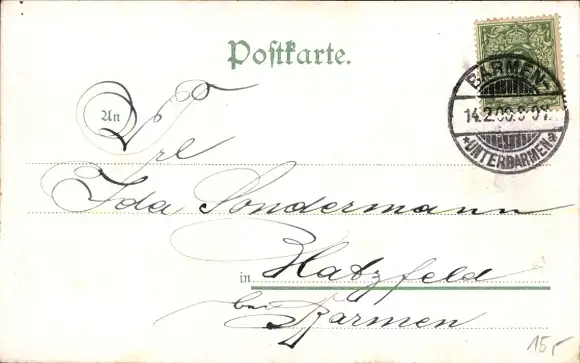 Postkarte.
BARMEN
14.2.00.8-9V.
*UNTERBARMEN a
An
Frl
Ida Sondermann
in Hatzfeld
bei Barmen
15,-